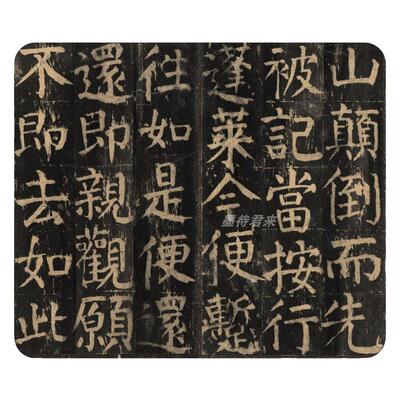 山顛倒而先
被記當按行
蓬萊今便蹔
往如是便還
還即親觀願
不即去如此
墨待君来